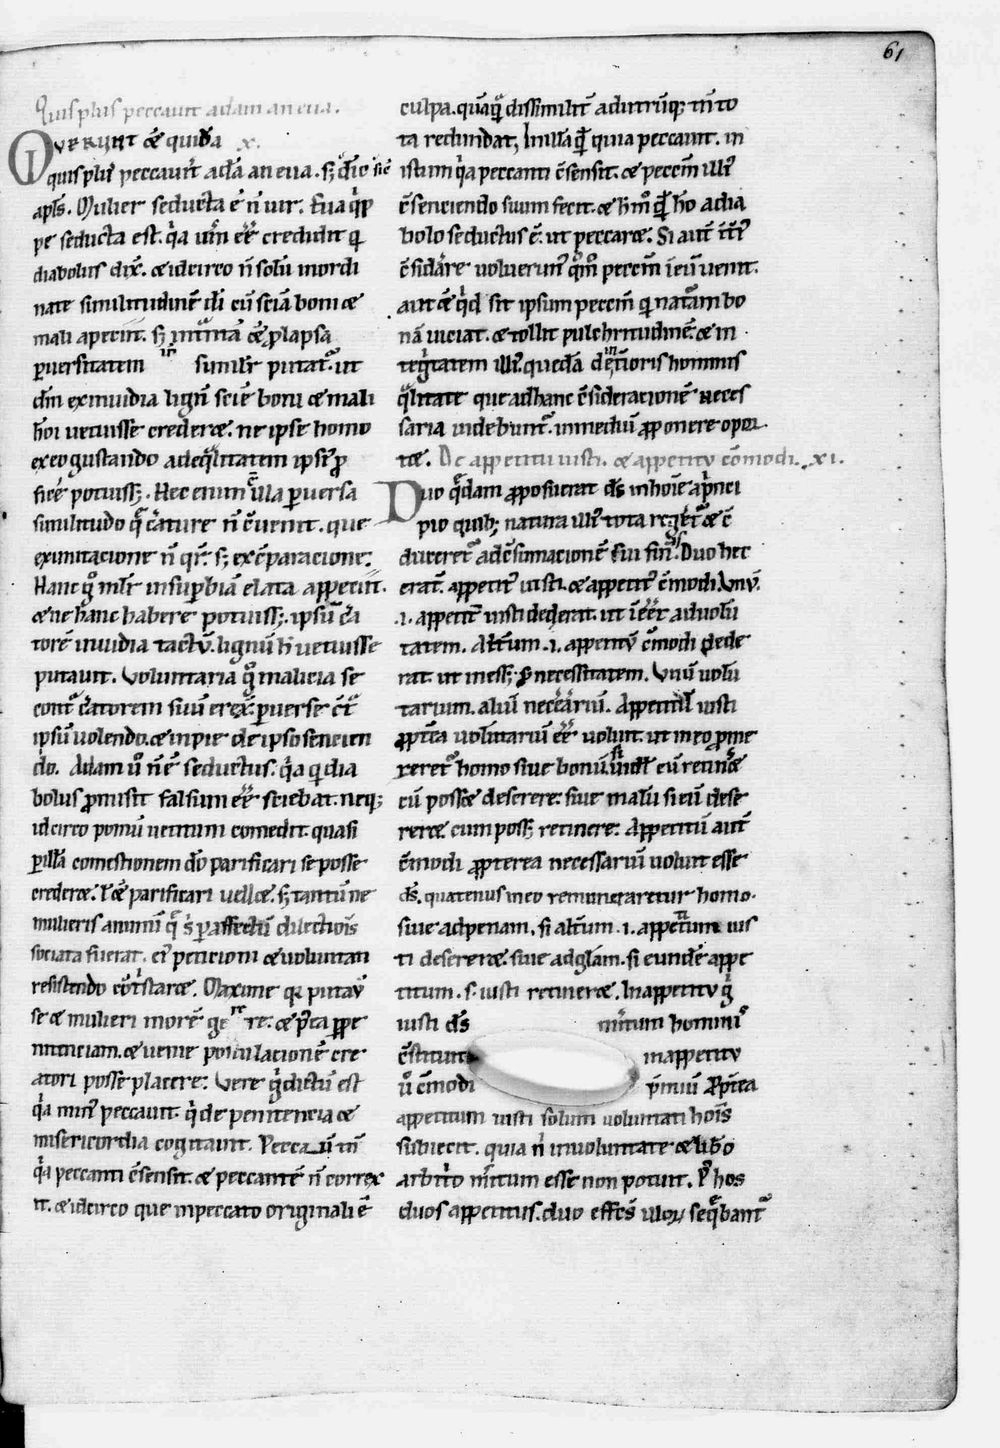 61
Quis plus peccauit adam an eua.
QVERUNT & quidā x.
quis pluſ peccauit adā an eua. sꝫ
apłs. Mulier seducta ē ñ uir. Eua
pe seducta est. q̓a uerū eē credidit
diabolus dix̄. & idcirco ñ solū inordi
nate similitudinē dī cū sciā boni &
mali apeciit. sꝫ plapsa
puersitatem similiť putat. ut
dm̄ ex inuidia lignū sciē boni & mali
hōi uetuisse credere&. ne ipse homo
ex eo gustando ad eq̄litatem ipsi᷒ p̱
ficere potuissꝫ. Hec enim illa puersa
similitudo creature ñ cuenit. que
ex imitacione ñ sꝫ ex cparacione.
Hanc g̊ mulr̄ in supbiā elata appeciit.
& ne hanc habere potuissꝫ. ipsū c̄a
torē inuidia tactū. lignū h̄ uetuisse
putauit. Voluntaria g̊ malicia se
contᷓ c̄atorem suū erex̄. puerse
ipsū uolendo. & inpie de ipso sencien
do. Adam ū ñ ē seductus. q̓a qđ dia
bolus pmisit falsum eē sciebat. neqꝫ
idcirco pomū uetitum comedit. quasi
p illā comestionem dō parificari se posse
credere&. parificari uelle&. sꝫ tantū ne
mulieris animū p affectū dilectiois
sociata fuerat. ei᷒ peticioni & uoluntati
resistendo cōt̓stare&. Maxime q̓ putau̅
se & mulieri morē ge re re. & p̱pe
nitenciam. & uenie postulacionē cre
atori posse placere: Vere q̄ dictū est
q̓a min᷒ peccauit. q̓ de penitencia &
misericordia cogitauit. Pecca ū tn̄
q̓a peccanti c̄sensit. & peccantē ñ correx
it. & idcirco que in peccato originali ē
culpa. quāq̄ dissimiliť ad utrūqꝫ tn̄ to
ta redundat, In illā qđ quia peccauit. in
istum q̓a peccanti c̄sensit. & peccm̄ illi᷒
c̄senciendo suum fecit. & qđ hō a dia
bolo seductus ē. ut peccare&. Si aut̄
c̄siderare uoluerim᷒ q̊m̊ peccm̄ uenit.
aut & q̓d sit ipsum peccm̄ qđ natᷓam bo
nā uiciat. & tollit pulchritudinē & in
tegritatem illi᷒. quedā de interioris hominis
q̄litate que ad hanc c̄sideracionē neces
saria uidebunt᷒. in mediū p̱ponere opor
t&. De appetitu iusti. & appetitu cōmodi. xi.
Duo q̄dam p̱posuerat dš in hoīe a p̓nci
pio quibꝫ natura illi᷒ tota reger&᷒ & c̄
duceret᷒ ad c̄sūmacionē sui finis. Duo hec
erāt. appetit᷒ iusti. & appetit᷒ c̄modi. Vnū
.i. appetitū iusti dederat. ut eēt ad uolū
tatem. Altm̄. i. appetitū c̄modi dede
rat. ut inessꝫ. p necessitatem. Vnū uolū
tarium. aliud necessariū. Appetitū iusti
p̱pt̄ea uoluntariū eē uoluit. ut in eo p̱me
reret᷒ homo siue bonū si illū cū retiner&
cū poss& deserere: siue malū si eū dese
rer& cum possꝫ retinere: Appetitū aut̄
c̄modi p̱pterea necessariū uoluit esse
dš. quatenus in eo remuneraretur homo.
siue ad penam. si altum. i. appetitum ius
ti deserer&. siue ad gl̄am. si eundē appe
titum. s. iusti retiner&. In appetitu g̊
iusti dš m̓itum homini᷒
c̄stituit in appetitu
ū c̄modi p̓miū p̱pt̄ea
appetitum iusti solum uoluntati hoīs
subiecit. quia ñ in uoluntate & lib̄o
arbit̓o m̓itum esse non potuit. P᷒ hos
duos appetitus. duo effect᷒ illoꝝ seq̄bant᷒